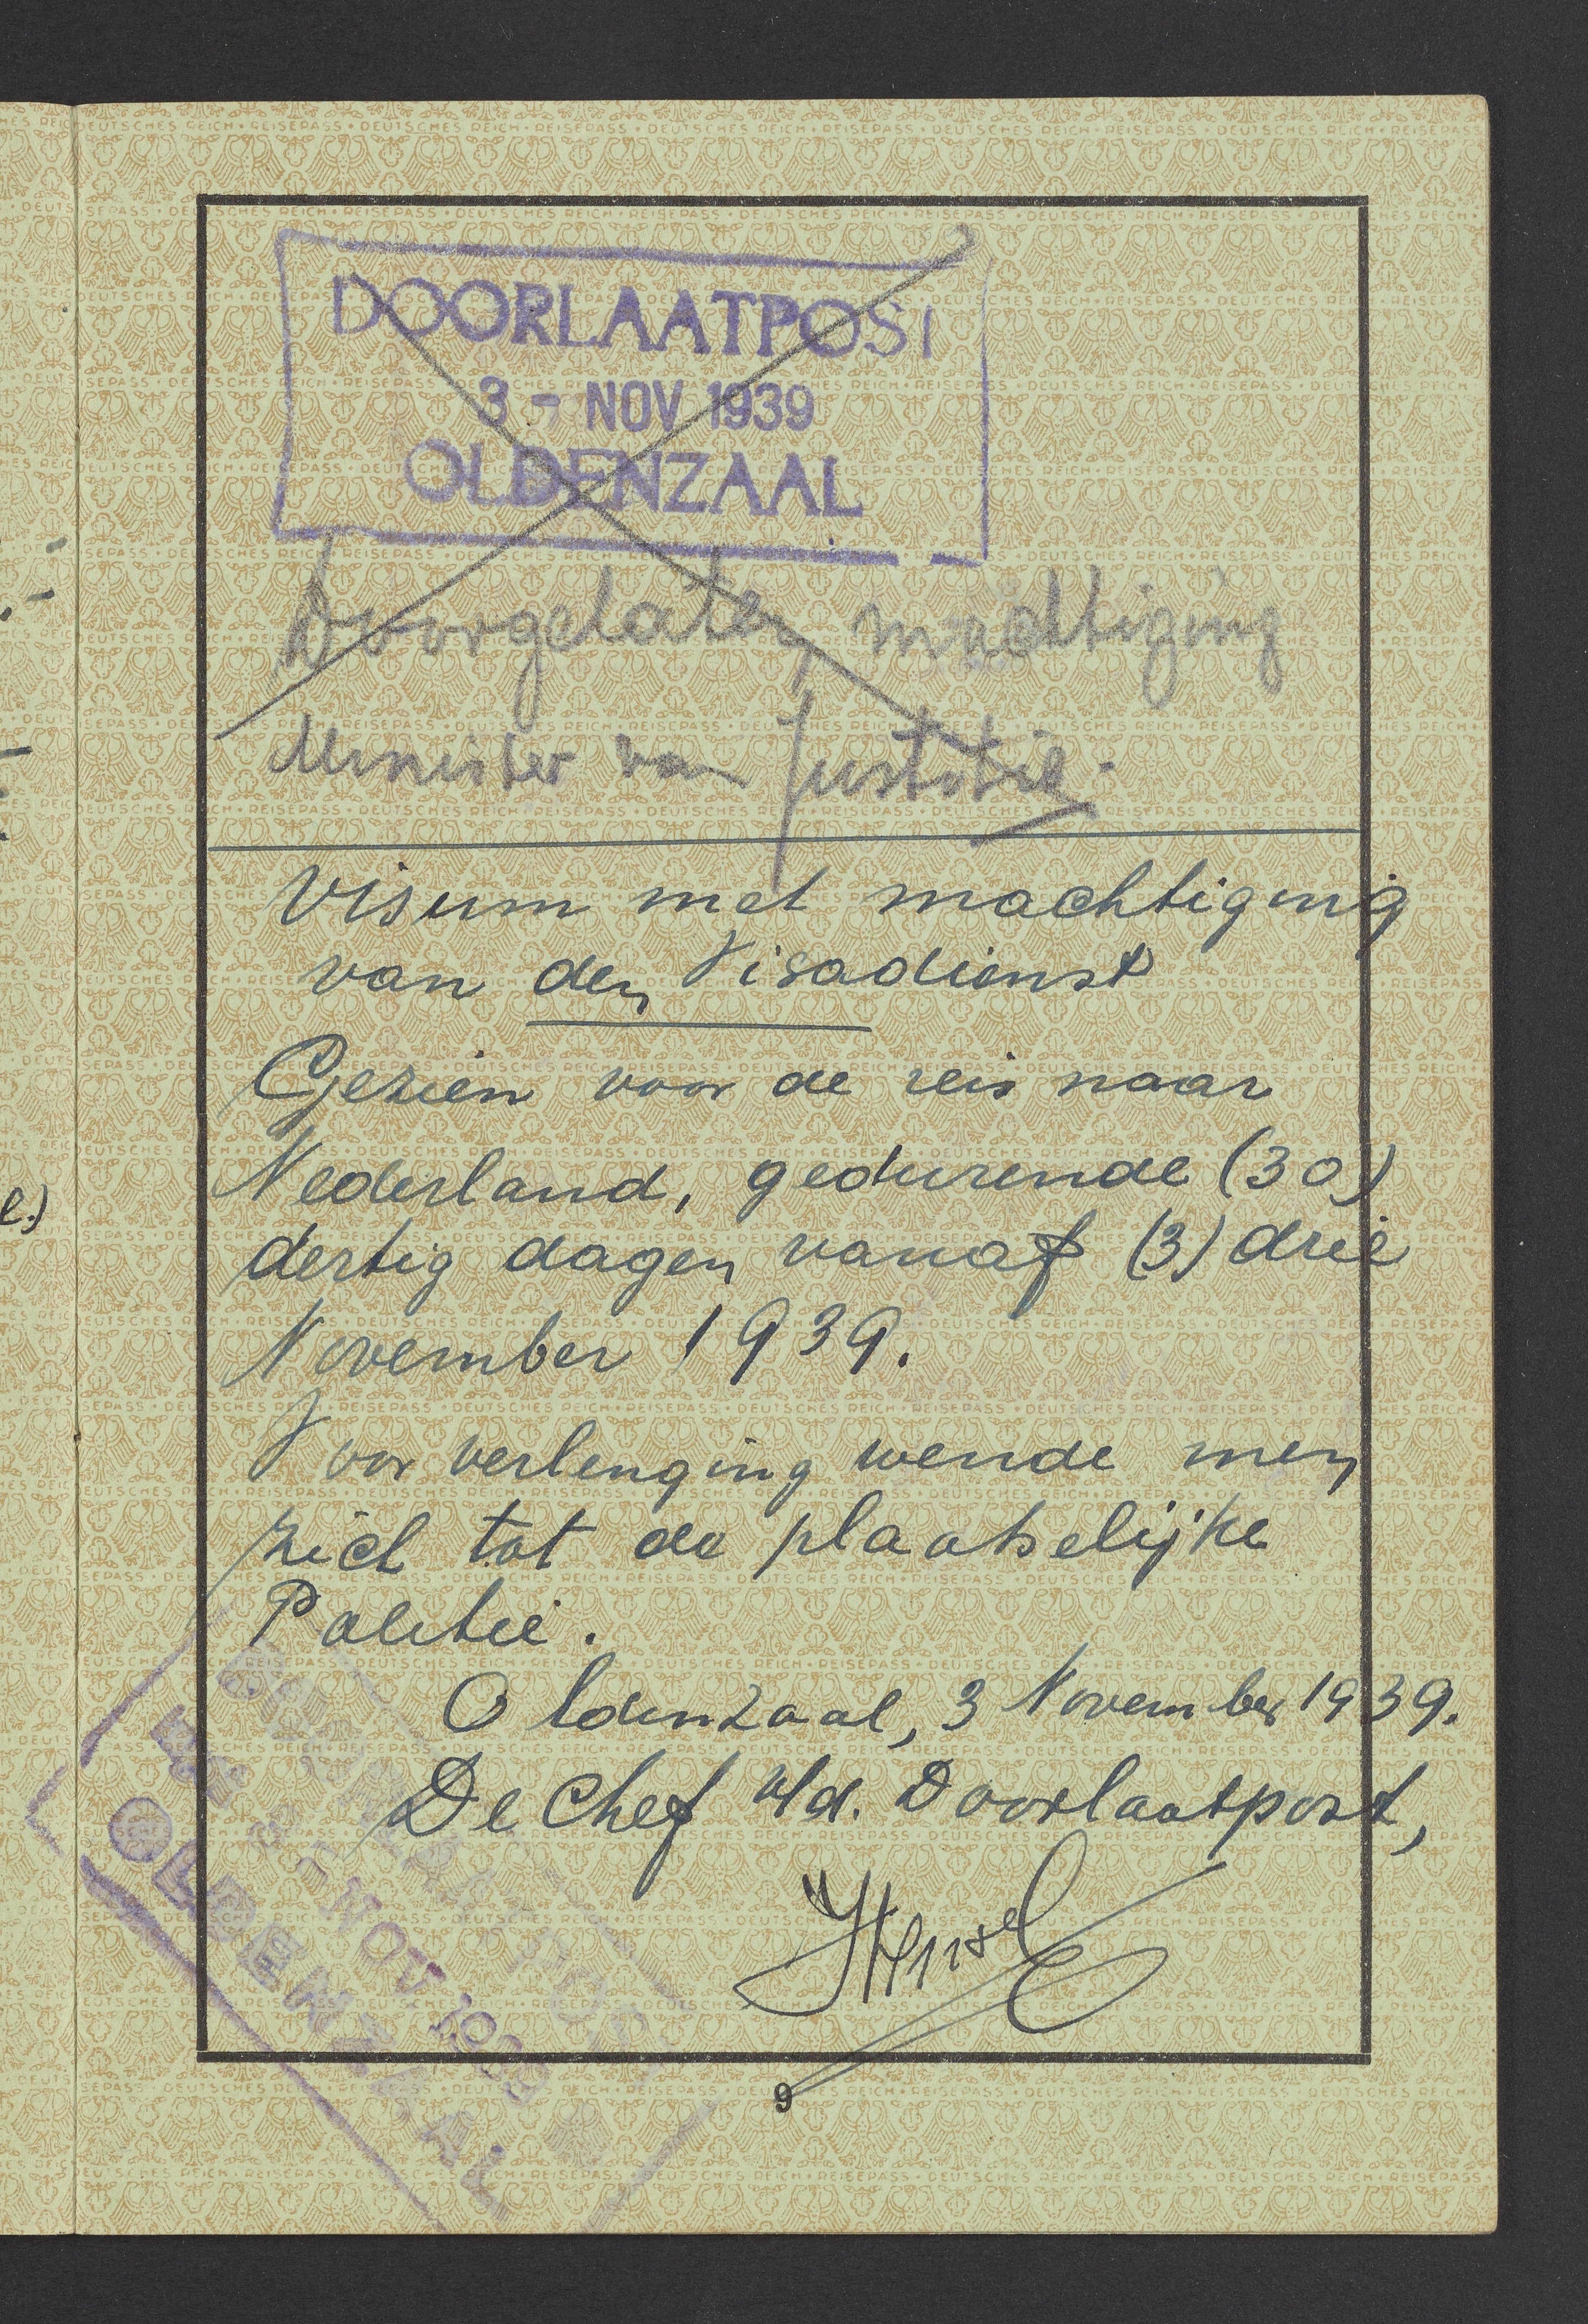 DOORLAATPOST
3 - NOV 1939
OLDENZAAL
Doorgelaten machtiging
Minister van Justitie.
Visum met machtiging
van den Visadienst
Gezien voor de reis naar
Nederland, gedurende (30)
dertig dagen vanaf (3) drie
November 1939.
Voor verlenging wende men
zich tot de plaatselijke
Politie.
Oldenzaal, 3 November 1939.
De Chef v/d. Doorlaatpost,
DOORLAATPOST
3 - NOV. 1939
OLDENZAAL
9